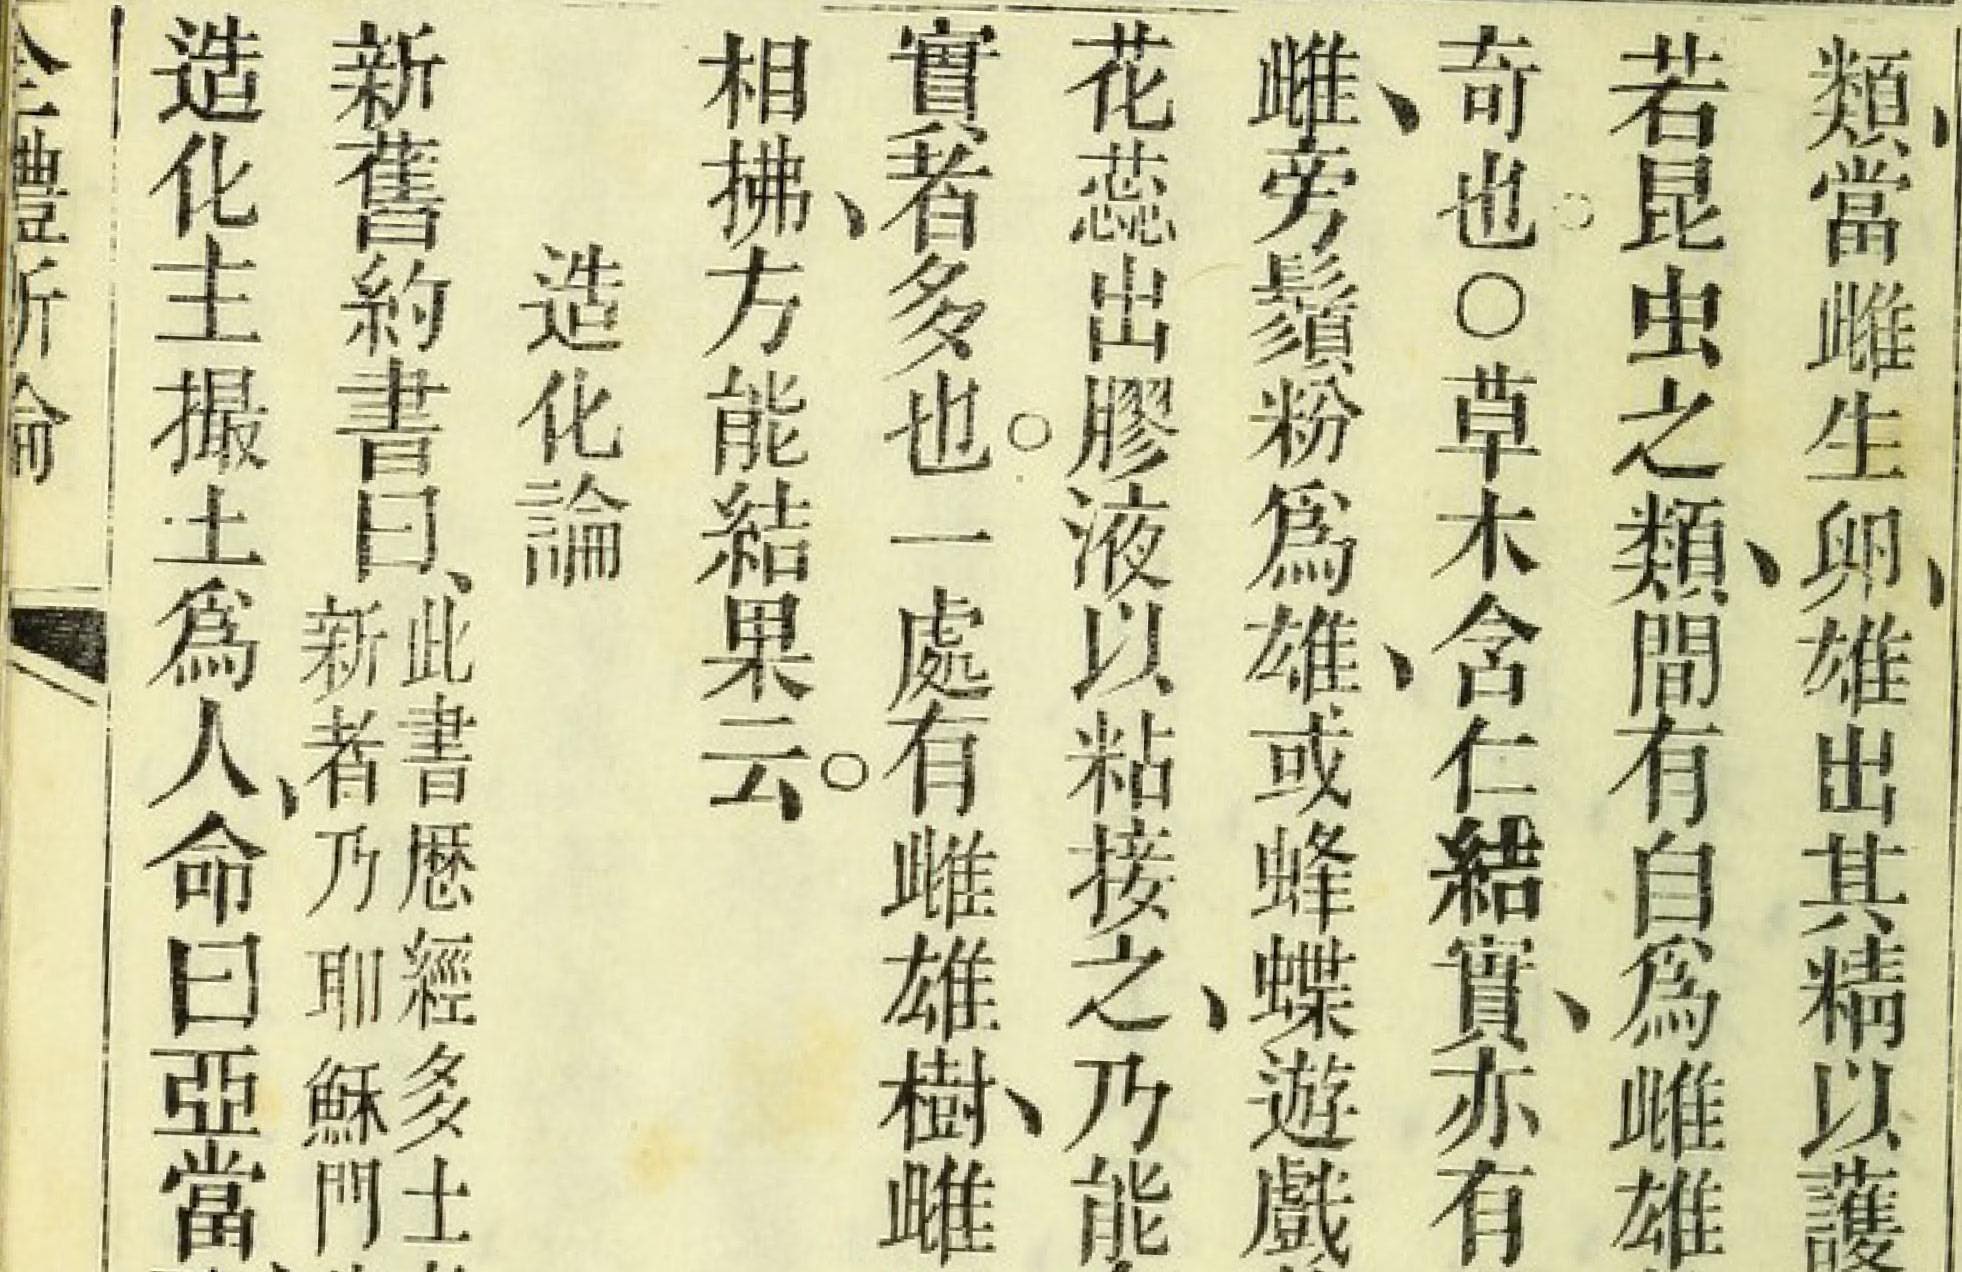 類、當雌生卵、雄出其精以護
若昆虫之類、間有自爲雌雄
奇也。○草木含仁結實、亦有
雌、旁鬚粉爲雄、或蜂蝶遊戲
花蕊出膠液以粘接之、乃能
實者多也。一處有雌雄樹、雌
相拂、方能結果云。
造化論
新舊約書曰、
此書歷經多士
新者乃耶穌門
造化主撮土爲人、命曰亞當
全體新論